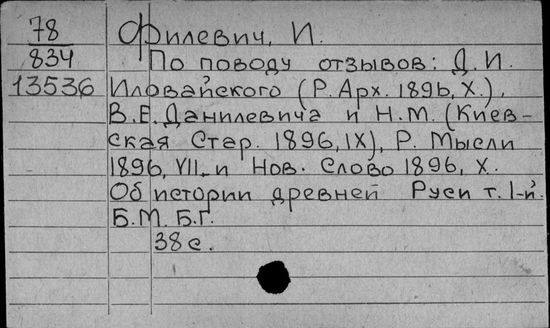 78 Филевич, И.
834 По поводу отзывов: Д.И.
13536 Иловайского (Р. Арх. 1896, X.),
В.Е. Данилевича и Н.М. (Киев-
ская Стар. 1896, IX), Р. Мысли
1896, VII, и Нов. Слово 1896, X.
Об истории древней Руси т. I-й.
Б.М. Б.Г.
38 с.